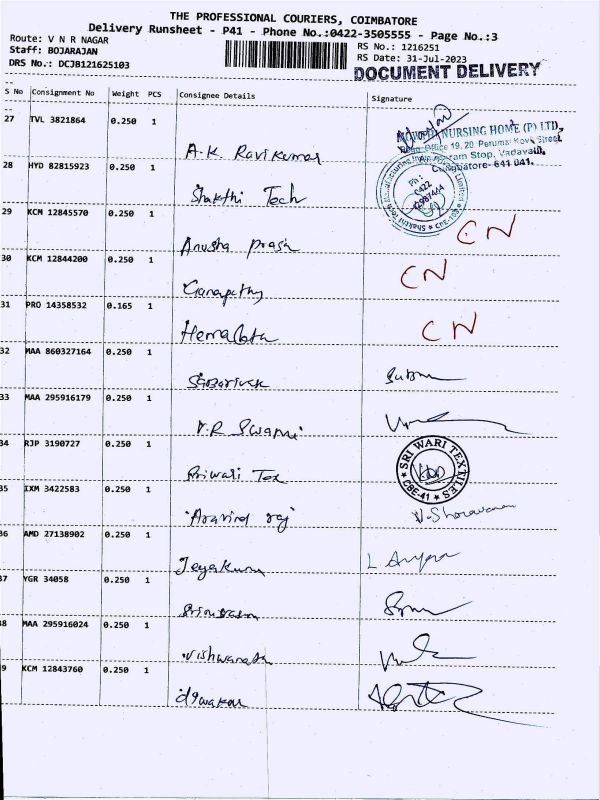 THE PROFESSIONAL COURIERS, COIMBATORE
Delivery Runsheet - P41 - Phone No.:0422-3505555 - Page No.:3
Route: V N R NAGAR
Staff: BOJARAJAN
DRS No.: DCJB121625103
RS No.: 1216251
RS Date: 31-Jul-2023
DOCUMENT DELIVERY
S No Consignment No Weight PCS Consignee Details Signature
27 TVL 3821864 0.250 1 A.K. Ravikumar
NURSING HOME (P) LTD,
Office 19, 20, Perumal Kovil Street
Stop, Vadavalli,
Coimbatore- 641 041.
28 HYD 82815923 0.250 1 Shakthi Tech
Ph:
0422
29 KCM 12845570 0.250 1 Anusha Prash CN
30 KCM 12844200 0.250 1 Ganapathy CN
31 PRO 14358532 0.165 1 Hemalatha CN
32 MAA 860327164 0.250 1
33 MAA 295916179 0.250 1 V.R Swami
34 RJP 3190727 0.250 1 Sriwari Tex
SRI WARI TEXTILES
CBE-41
35 IXM 3422583 0.250 1 Aravind raj V.Sharavanan
36 AMD 27138902 0.250 1 Jeyakumar
37 YGR 34058 0.250 1
38 MAA 295916024 0.250 1 Vishwanath
9 KCM 12843760 0.250 1 diwakar